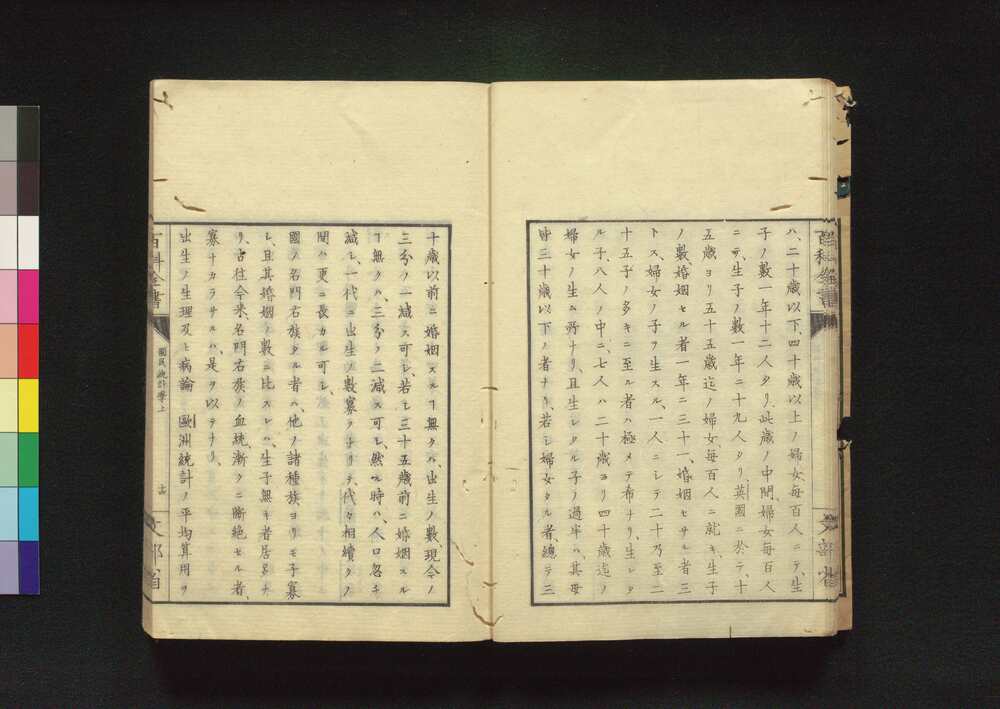 ハ、二十歳以下、四十歳以上ノ婦女、毎百人ニテ、生
子ノ數一年十二人タリ、此歳ノ中間、婦女毎百人
ニテ、生子ノ數一年二十九人タリ、英國ニ於テ、十
五歳ヨリ五十五歳迄ノ婦女、毎百人ニ就キ、生子
ノ數、婚姻セル者一年ニ三十一、婚姻セサル者三
トス、婦女ノ子ヲ生スル、一人ニシテ二十乃至二
十五子ノ多キニ至ル者ハ極メテ希ナリ、生レタ
ル子、八人ノ中ニ、七人ハ二十歳ヨリ四十歳迄ノ
婦女ノ生ム所ナリ、且生レタル子ノ過半ハ、其母
皆三十歳以下ノ者ナリ、若シ婦女タル者、總テ三
百科全書
文部省
十歳以前ニ婚姻スルヿ無クハ、出生ノ數、現今ノ
三分ノ一減ス可レ、若シ三十五歳前ニ婚姻スル
ヿ無クハ、三分ノ二減ス可シ、然ル時ハ、人口畧キ
減シ、一代ニ出生ノ數寡クナリテ、代々相續クノ
間ハ更ニ長カル可シ、
國ノ名門右族タル者ハ、他ノ諸種族ヨリモ子寡
シ、且其婚姻ノ數ニ比スレハ、生子無キ者居多ナ
リ、古往今来名門右族ノ血統、漸クニ斷絶セル者、
寡ナカラサルハ、是ヲ以テナリ、
出生ノ生理及ヒ病論　歐洲統計ノ平均算用ヲ
百科全書
國民統計學上
文部省